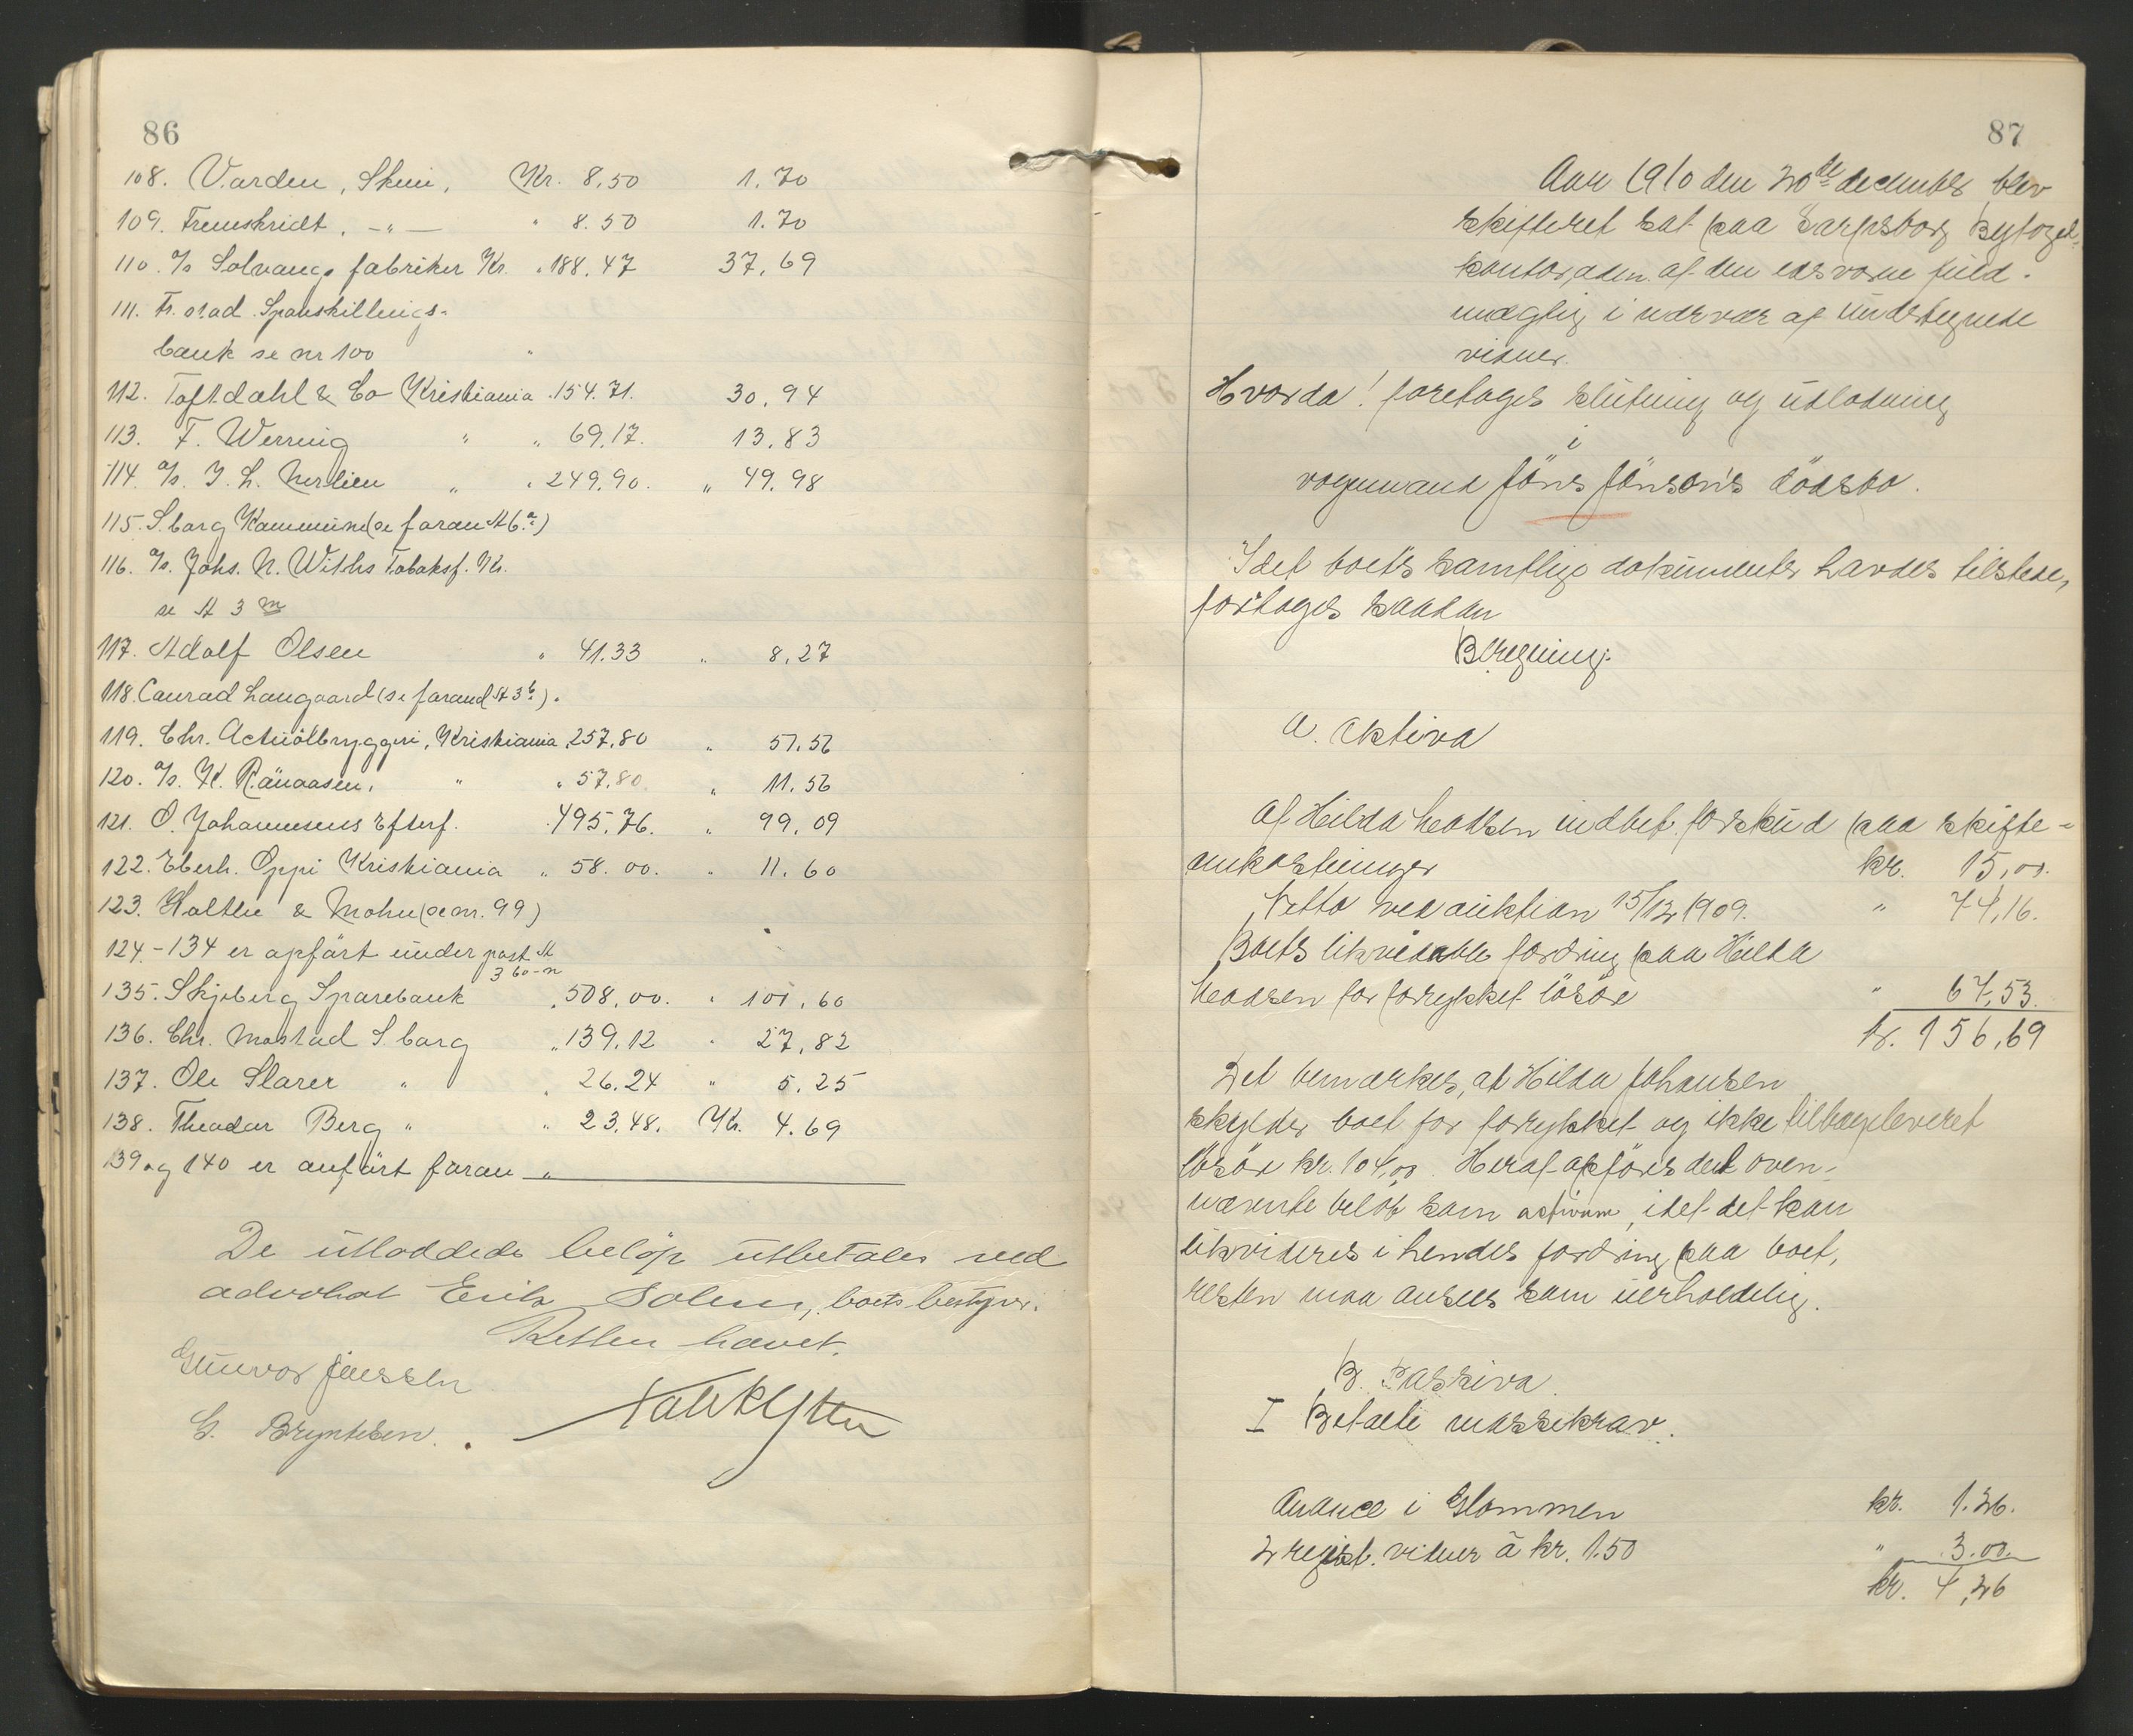 86
108. Varden, Skien, Kr. 8,50 1.70
109. Fremskridt, -"- " 8.50 1.70
110. A/s Solvangs fabriker Kr. " 188,47 37,69
111. Fr.stad Sparskillings-
bank se nr 100 "
112. Toftdahl & Co Kristiania " 154.71. 30,94
113. F. Werring " " 69,17. 13,83
114. A/s. J. L. Nerlien " " 249,90. " 49,98
115. S.borg Kommune (se foran A 6 a)
116. A/s. Johs. N. Withs Tobaksf. Kr.
se A 3 m
117. Adolf Olsen " 41.33 " 8,27
118. Conrad Langaard (se forand A 3 b).
119. Chr. Actieølbryggeri, Kristiania " 257,80 " 51,56
120. A/s. K. Rånaasen, " " 57,80 " 11,56
121. O. Johannesens Efterf. " 495,76. " 99,09
122. Eberh. Oppi Kristiania " 58.00. " 11.60
123. Holthe & Mohn (se nr. 99)
124-134 er opført under post A
3 b-n
135. Skjeberg Sparebank " 508,00. " 101,60
136. Chr. Mostad S.borg " 139,12 " 27,82
137. Ole Slarer " " 26,24 " 5,25
138. Theodor Berg " " 23,48. Kr. 4.69
139 og 140 er anført foran "
De utloddede beløp utbetales ved
advokat Erik Solem, boets bestyrer.
Retten hævet.
Gunvor Jenssen
G. Bryntesen.
87
Aar 1910 den 20de december blev
skifteret sat paa Sarpsborg byfoged-
kontor, adm. af den edsvorne fuld-
mægtig i nærvær af undertegnede
vidner.
Hvorda! foretoges slutning og utlodning
i
vognmand Jöns Jönson's dödsbo.
Idet boets samtlige dokumenter havdes tilstede,
foretoges saadan
Beregning:
A. Aktiva
Af Hilda Madsen indbet. forskud paa skifte-
omkostninger kr. 15,00.
Netto ved auktion 15/12 1909. " 74,16.
Boets likvidable fordring paa Hilda
Madsen for forrykket lösöre " 67,53.
kr. 156,69
Det bemærkes, at Hilda Johansen
skylder boet for forrykket og ikke tilbageleveret
lösöre kr. 104,00. Heraf opföres det oven-
nævnte belöb som activum, idet det kan
likvideres i hendes fordring paa boet,
resten maa ansees som uerholdelig.
B. Passiva.
I Betalte massekrav.
Annonce i Glommen kr. 1.26.
2 regist. vidner à kr. 1.50 " 3.00.
kr. 4,26